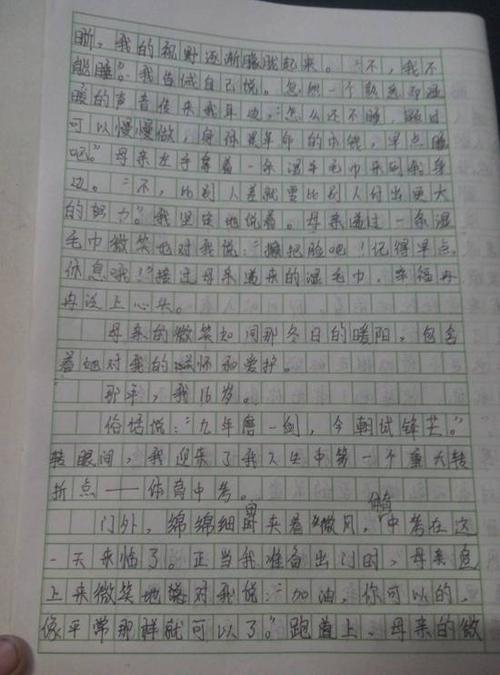 晰，我的视野逐渐朦胧起来。“不，我不
能睡”。我告诫自己说。忽然一个熟悉却温
暖的声音传来我耳边，“怎么还不睡，题目
可以慢慢做，身体是革命的本钱，早点睡
吧。”母亲左手拿着一条湿毛巾来到我身
边。“不，比别人差就要比别人付出更大
的努力”。我坚定地说着。母亲递过一条湿
毛巾微笑地对我说：“擦把脸吧！记得早点
休息哦！”接过母亲递来的湿毛巾，幸福再
再涌上心头。
母亲的微笑如同那冬日的暖阳，包含
着她对我的关怀和爱护。
那年，我16岁。
俗话说：“九年磨一剑，今朝试锋芒。”
转眼间，我迎来了我人生中第一个重大转
折点——体育中考。
门外，绵绵细雨夹着微风，体育中考在这
一天来临了。正当我准备出门时，母亲迎
上来微笑地对我说：“加油，你可以的，
像平常那样就可以了。”跑道上，母亲的微